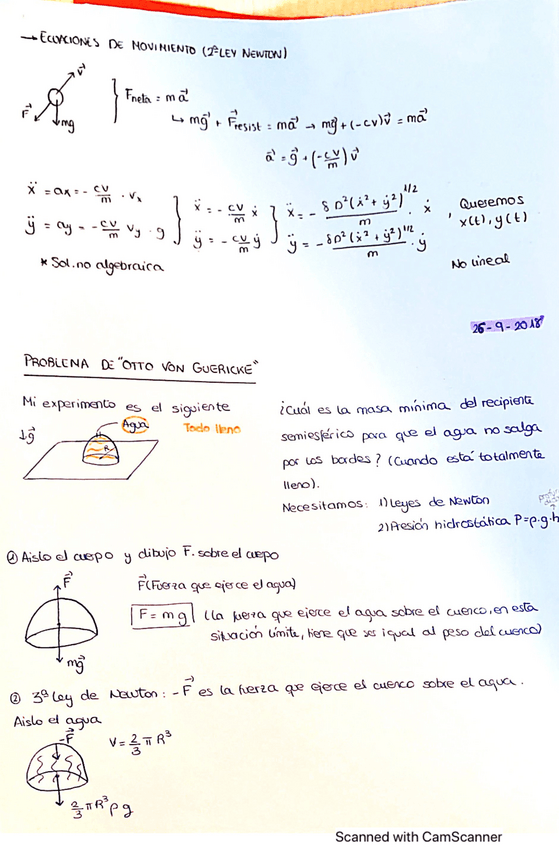 → ECUACIONES DE MOVIMIENTO (2ª LEY NEWTON)
v⃗
F⃗
mg⃗
Fneta = m a⃗
↳ mg⃗ + F⃗resist = ma⃗ → mg⃗ + (-cv)v⃗ = ma⃗
a⃗ = g⃗ + (-cv/m) v⃗
ẍ = ax = - cv/m · vx
ÿ = ay = - cv/m vy · g
ẍ = - cv/m ẋ
ÿ = - cv/m ẏ
ẍ = - δD²(ẋ² + ẏ²)^1/2 / m · ẋ
ÿ = - δD²(ẋ² + ẏ²)^1/2 / m · ẏ
, Queremos
x(t), y(t)
* Sol. no algebraica
No lineal
26-9-2018
PROBLEMA DE "OTTO VON GUERICKE"
Mi experimento es el siguiente
↓g⃗
Agua
Todo lleno
R
¿Cuál es la masa mínima del recipiente
semiesférico para que el agua no salga
por los bordes? (Cuando está totalmente
lleno).
Necesitamos: 1) Leyes de Newton
2) Presión hidrostática P=ρ·g·h
① Aislo el cuerpo y dibujo F. sobre el cuerpo
F⃗
mg⃗
F⃗ (Fuerza que ejerce el agua)
F = mg (La fuerza que ejerce el agua sobre el cuenco, en esta
situación límite, tiene que ser igual al peso del cuenco)
② 3ª Ley de Newton: -F⃗ es la fuerza que ejerce el cuenco sobre el agua.
Aislo el agua
-F⃗
V = 2/3 π R³
2/3 πR³ρg
Scanned with CamScanner